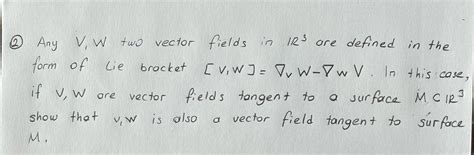 ② Any V, W two vector fields in IR³ are defined in the
form of Lie bracket [V,W] = ∇ᵥ W - ∇w V. In this case,
if V, W are vector fields tangent to a surface M ⊂ IR³
show that V, W is also a vector field tangent to surface
M.